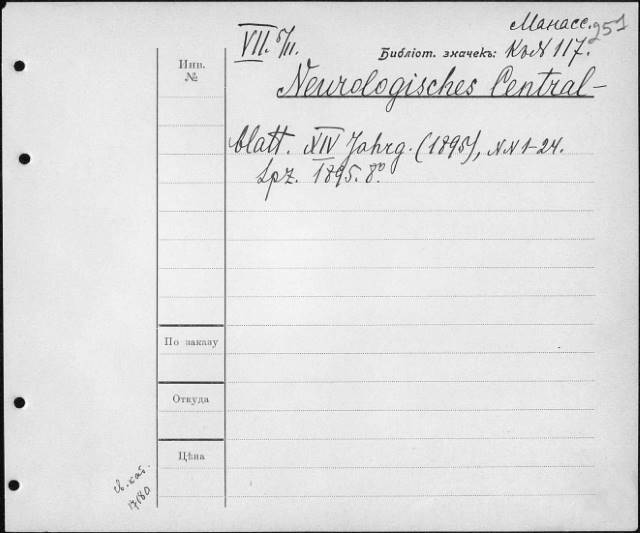 Манасс. 251
VII. 5/II.
Библіот. значекъ: КъN 117.
Инв.
№
Neurologisches Central-
blatt. XIV Jahrg. (1895), NN 1-24.
Lpz. 1895. 8°.
По заказу
Откуда
Цѣна
св. кат.
17180